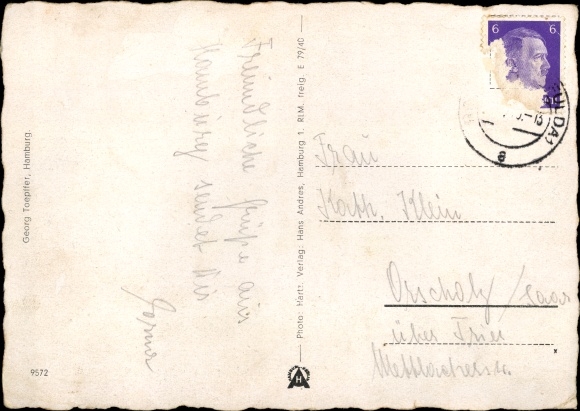 Freundliche Grüße aus
Hamburg sendet Dir
Georg Toepffer, Hamburg.
9572
Photo · Hartt. Verlag: Hans Andres, Hamburg 1. RLM. freig. E 79/40
H
6 6
Frau
Kath. Klein
Orscholz / Saar
über Trier